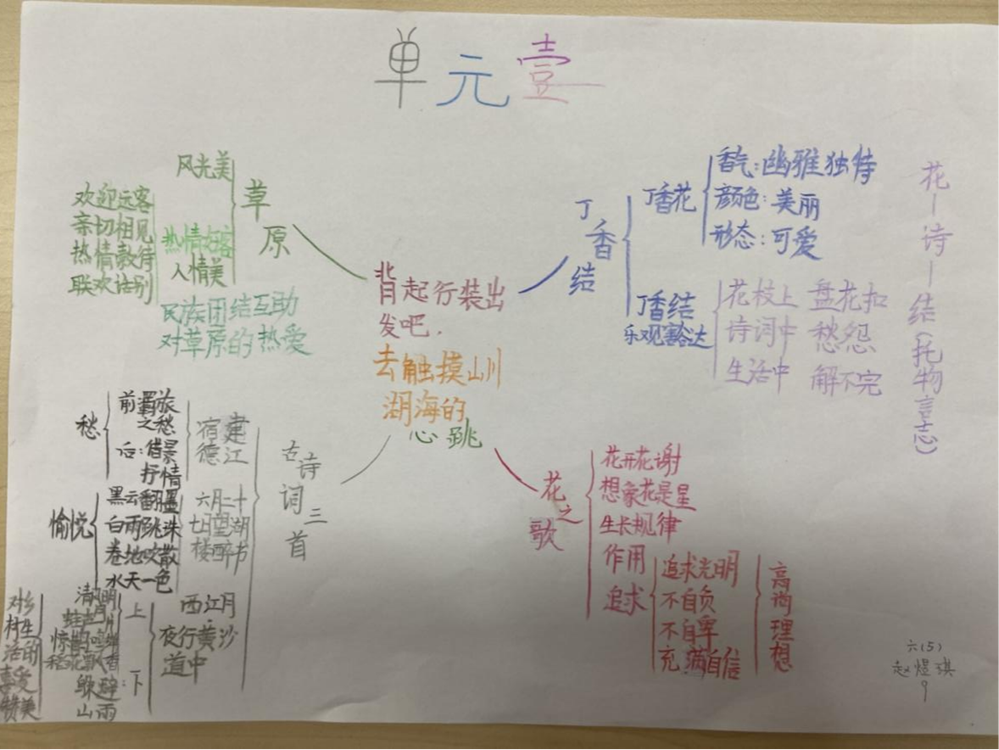 单元壹
背起行装出
发吧.
去触摸山川
湖海的
心跳
草
原
风光美
热情好客
人情美
欢迎远客
亲切相见
热情款待
联欢话别
民族团结互助
对草原的热爱
丁
香
结
丁香花
香气:幽雅独特
颜色:美丽
形态:可爱
丁香结
乐观豁达
花枝上 盘花扣
诗词中 愁怨
生活中 解不完
花—诗—结(托物言志)
古诗
词三
首
宿建
德江
愁
旅
之愁
后:借景
抒情
六月二十
七日望湖
楼醉书
愉悦
黑云翻墨
白雨跳珠
卷地吹散
水天一色
西江月
夜行黄沙
道中
上
下
躲避
山雨
对乡
村生
活的
喜爱
赞美
花
之
歌
花开花谢
想象花是星
生长规律
作用
追求
追求光明
不自负
不自卑
充满自信
高尚理想
六(5)
赵煜祺
9